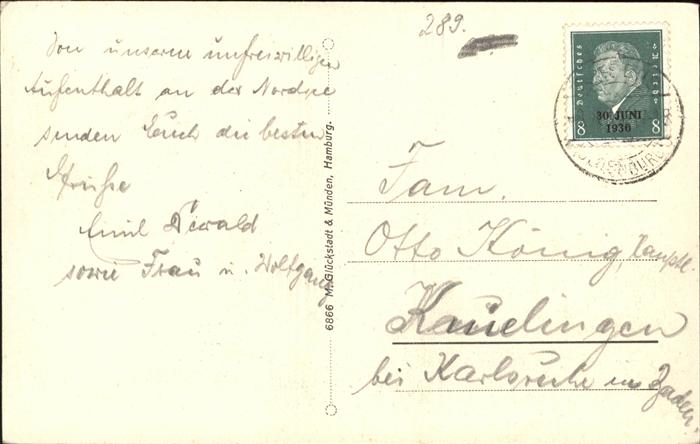 289.
Von unserm unfreiwilligen
Aufenthalt an der Nordsee
senden Euch die besten
Grüße
Emil Dewald
sowie Frau u. Wolfgang
6866 M. Glückstadt & Münden, Hamburg.
Deutsches Reich
30. JUNI
1930
8 8
OLDENBURG
Fam.
Otto König,
bei Karlsruhe in Baden